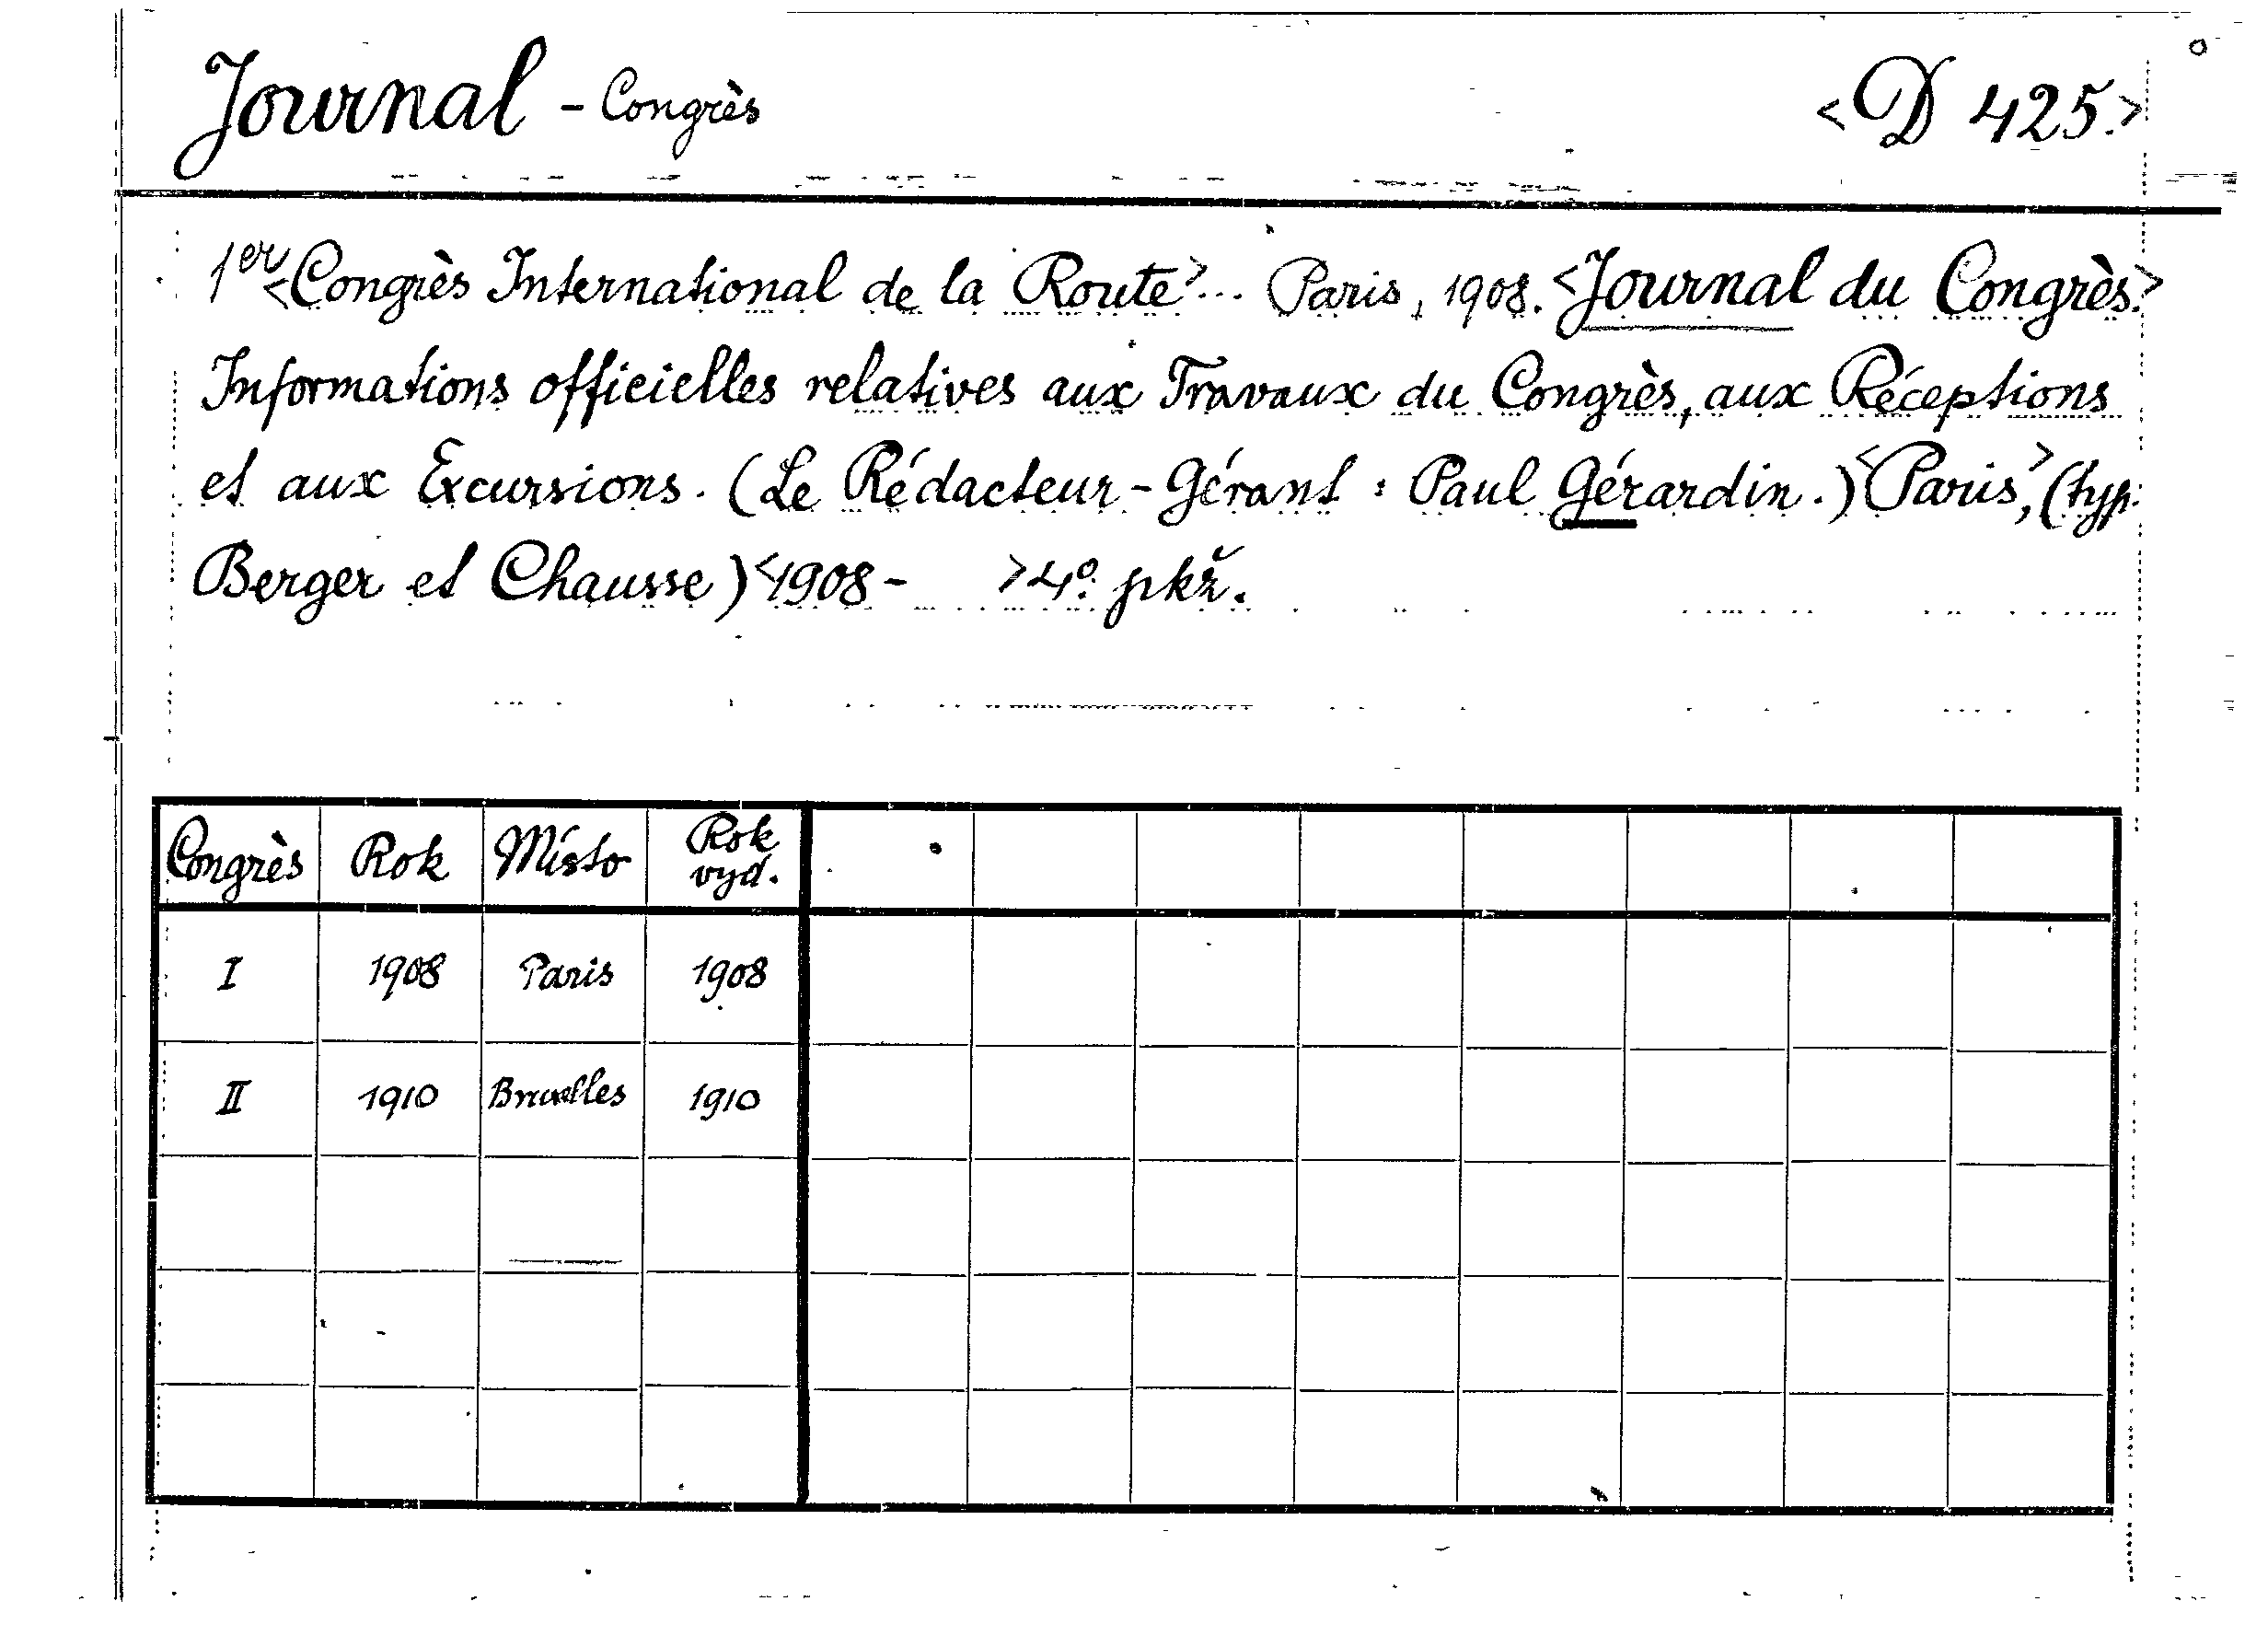 Journal - Congrès <D 425.>
1er <Congrès International de la Route>... Paris, 1908. <Journal du Congrès.>
Informations officielles relatives aux Travaux du Congrès, aux Réceptions
et aux Excursions. (Le Rédacteur-Gérant : Paul Gérardin.) <Paris>, (typ.
Berger et Chausse) <1908- >4º. pkž.
Congrès Rok Místo Rok vyd.
I 1908 Paris 1908
II 1910 Bruxelles 1910